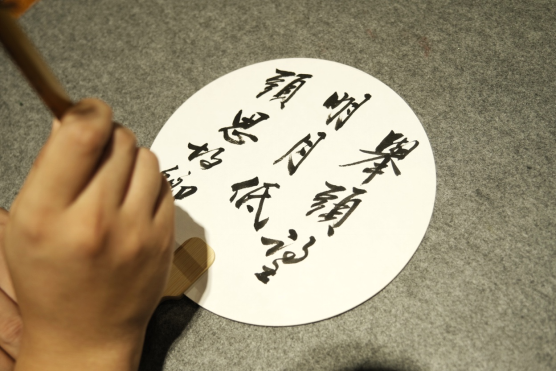 舉頭望
明月低
頭思故鄉